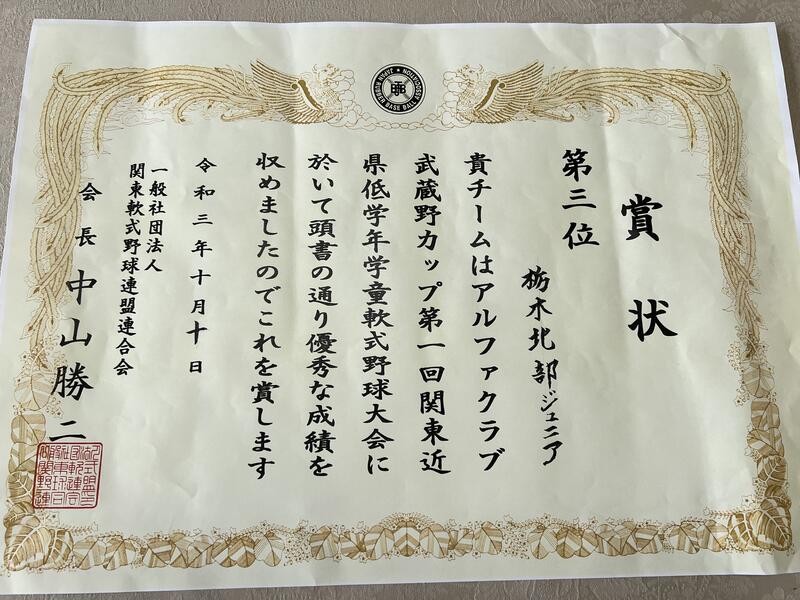 賞状
第三位
栃木北部ジュニア
貴チームはアルファクラブ
武蔵野カップ第一回関東近
県低学年学童軟式野球大会に
於いて頭書の通り優秀な成績を
収めましたのでこれを賞します
令和三年十月十日
一般社団法人
関東軟式野球連盟連合会
会長 中山勝二